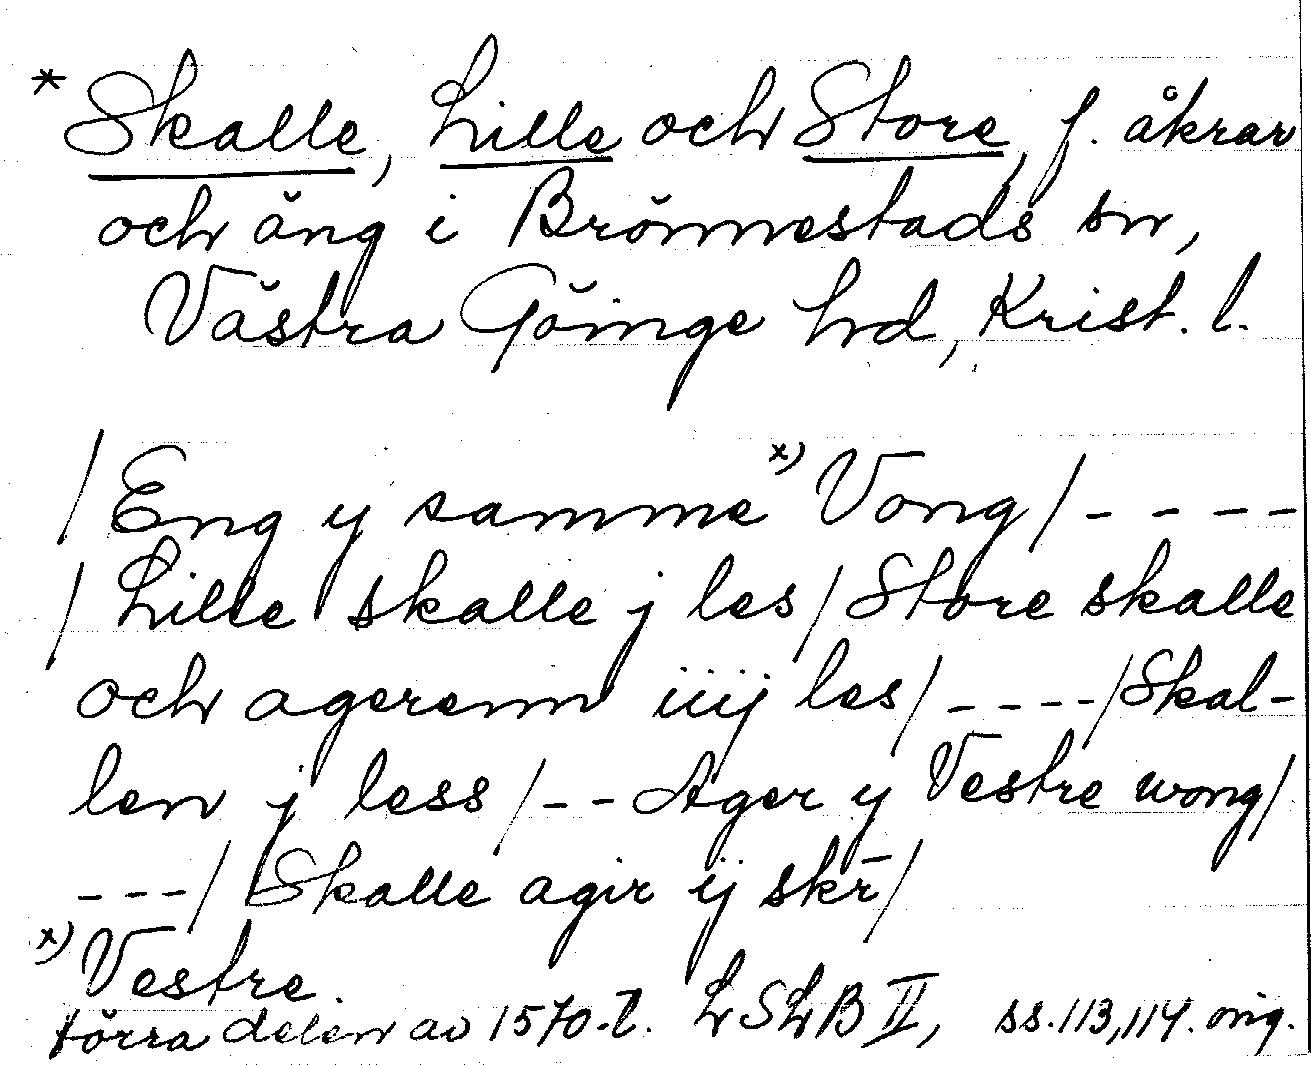 * Skalle, Lille och Store, f. åkrar
och äng i Brönnestads sn,
Västra Göinge hd, Krist. l.
/Eng y samme x) Vong/ - - - -
/Lille skalle j les/Store skalle
och agerenn iiij les/ - - - -/Skal-
len j less/ - - Ager y Vestre wong/
- - -/ Skalle agir ij skr̄/
x) Vestre.
förra delen av 1570-t. LSLB II, ss. 113, 114. orig.